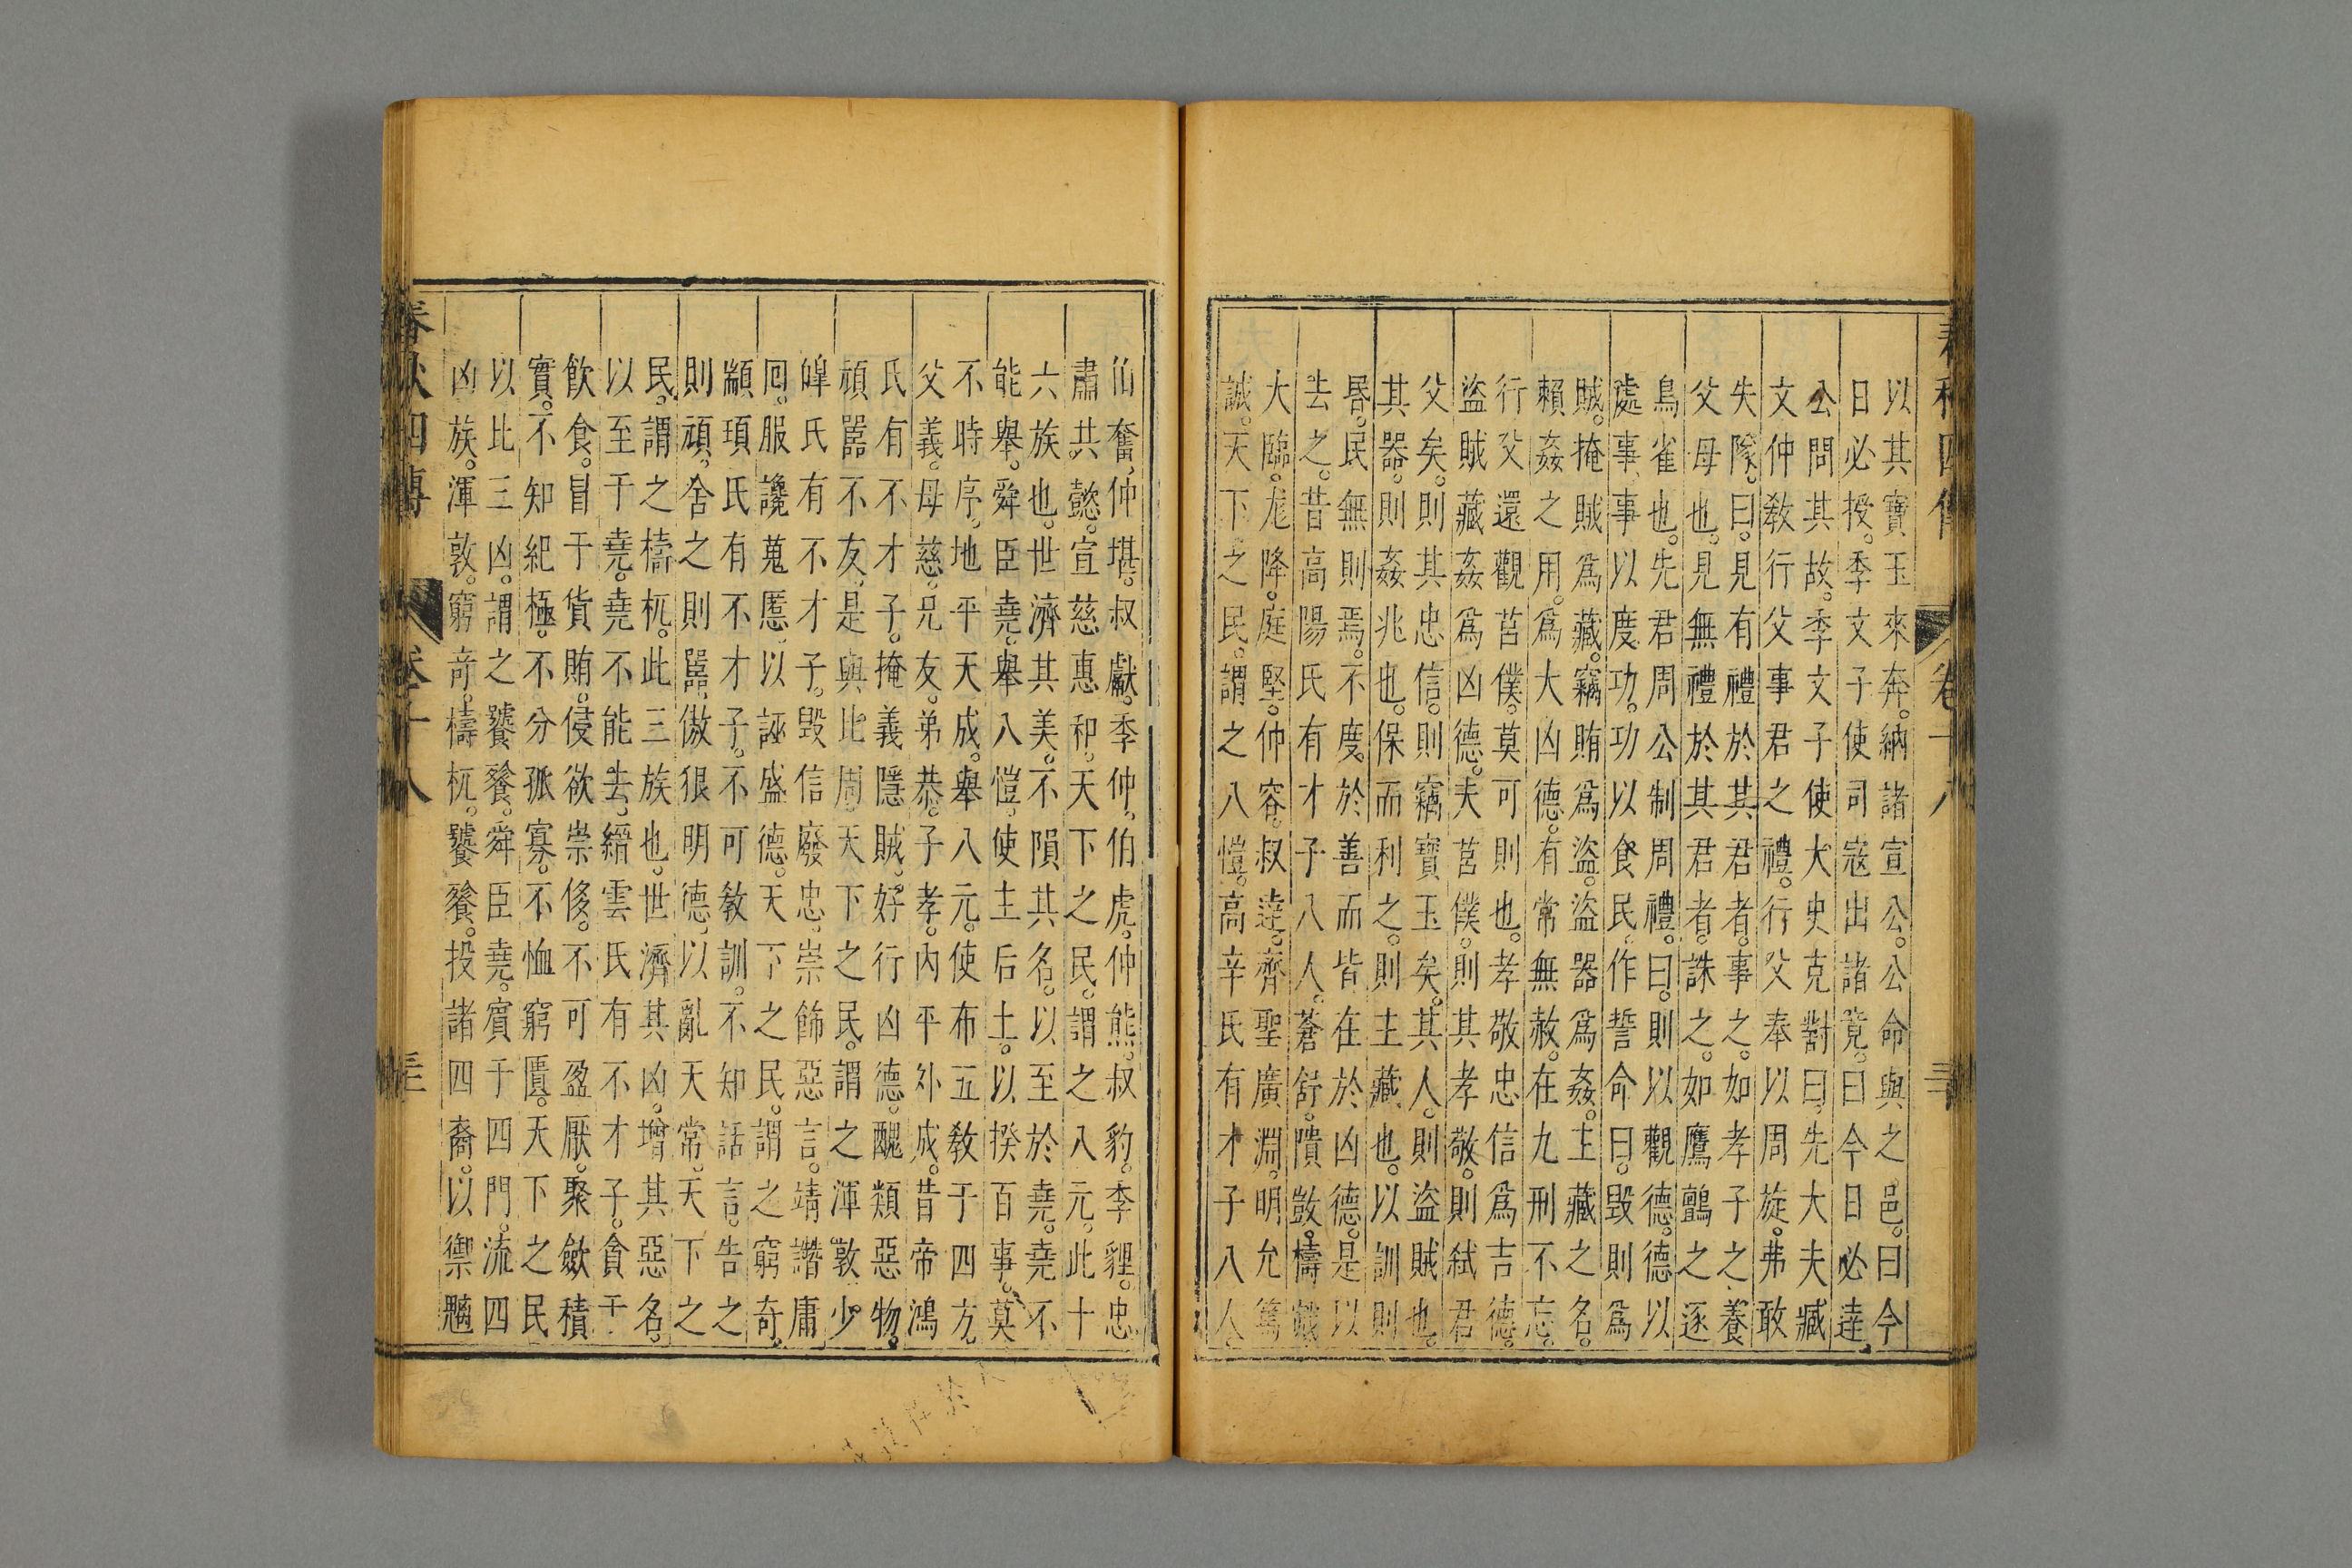 以其寶玉來奔。納諸宣公。公命與之邑。曰今
日必授。季文子使司寇出諸竟。曰今日必逹。
公問其故。季文子使大史克對曰。先大夫臧
文仲敎行父事君之禮。行父奉以周旋。弗敢
失隊。曰。見有禮於其君者。事之。如孝子之養
父母也。見無禮於其君者。誅之。如鷹鸇之逐
鳥雀也。先君周公制周禮。曰。則以觀德。德以
處事。事以度功。功以食民。作誓命曰。毀則爲
賊。掩賊爲藏。竊賄爲盜。盜器爲姦。主藏之名。
賴姦之用。爲大凶德。有常無赦。在九刑不忘。
行父還觀莒僕。莫可則也。孝敬忠信爲吉德。
盜賊藏姦爲凶德。夫莒僕。則其孝敬。則弑君
父矣。則其忠信。則竊寶玉矣。其人。則盜賊也。
其器。則姦兆也。保而利之。則主藏也。以訓則
昬。民無則焉。不度。於善而皆在於凶德。是以
去之。昔高陽氏有才子八人。蒼舒。隤敳。檮戭
大臨。尨降。庭堅。仲容。叔逹。齊聖廣淵。明允篤
誠。天下之民。謂之八愷。高辛氏有才子八人。
春秋四傳
卷十八
伯奮。仲堪。叔獻。季仲。伯虎。仲熊。叔豹。季貍。忠
肅共懿。宣慈惠和。天下之民。謂之八元。此十
六族也。世濟其美。不隕其名。以至於堯。堯不
能舉。舜臣堯。舉八愷。使主后土。以揆百事。莫
不時序。地平天成。舉八元。使布五敎于四方。
父義。母慈。兄友。弟恭。子孝。內平外成。昔帝鴻
氏有不才子。掩義隱賊。好行凶德。醜類惡物。
頑嚚不友。是與比周。天下之民。謂之渾敦。少
皥氏有不才子。毀信廢忠。崇飾惡言。靖譖庸
囘。服讒蒐慝。以誣盛德。天下之民。謂之窮奇。
顓頊氏有不才子。不可敎訓。不知話言。告之
則頑。舍之則嚚。傲狠明德。以亂天常。天下之
民。謂之檮杌。此三族也。世濟其凶。增其惡名。
以至于堯。堯不能去。縉雲氏有不才子。貪于
飮食。冒于貨賄。侵欲崇侈。不可盈厭。聚斂積
實。不知紀極。不分孤寡。不恤窮匱。天下之民
以比三凶。謂之饕餮。舜臣堯。賓于四門。流四
凶族。渾敦。窮奇。檮杌。饕餮。投諸四裔。以禦魑
春秋四傳
卷十八